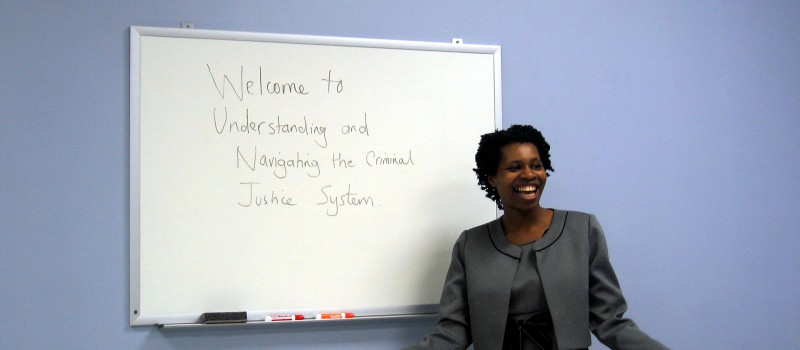 Welcome to
Understanding and
Navigating the Criminal
Justice System.